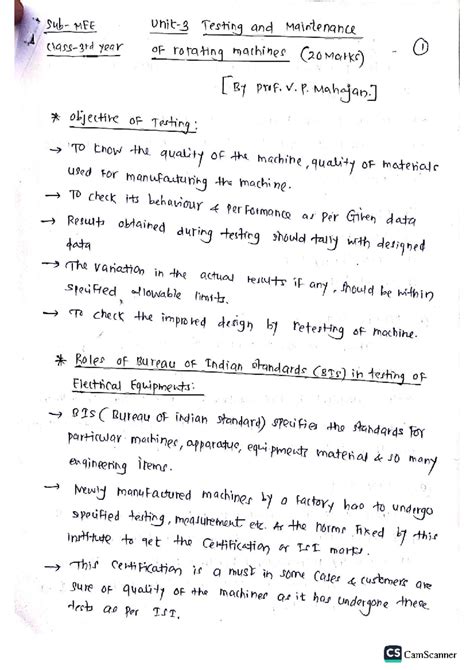 Sub- MFE
Unit-3 Testing and Maintenance
Class-3rd year
of rotating machines (20 Marks) - ①
[By Prof. V. P. Mahajan.]
* Objective of Testing:
→ To know the quality of the machine, quality of materials
used for manufacturing the machine.
→ To check its behaviour & performance as per Given data
→ Results obtained during testing should tally with designed
data
→ The variation in the actual results if any, should be within
specified, allowable limits.
→ To check the improved design by retesting of machine.
* Roles of Bureau of Indian Standards (BIS) in testing of
Electrical Equipments:
→ BIS ( Bureau of indian standard) specifies the standards for
particular machines, apparatus, equipments material & so many
engineering items.
→ Newly manufactured machines by a factory has to undergo
specified testing, measurement etc. As the norms fixed by this
institute to get the certification or ISI marks.
→ This certification is a must in some cases & customers are
sure of quality of the machines as it has undergone these
tests as per ISI.
CS CamScanner